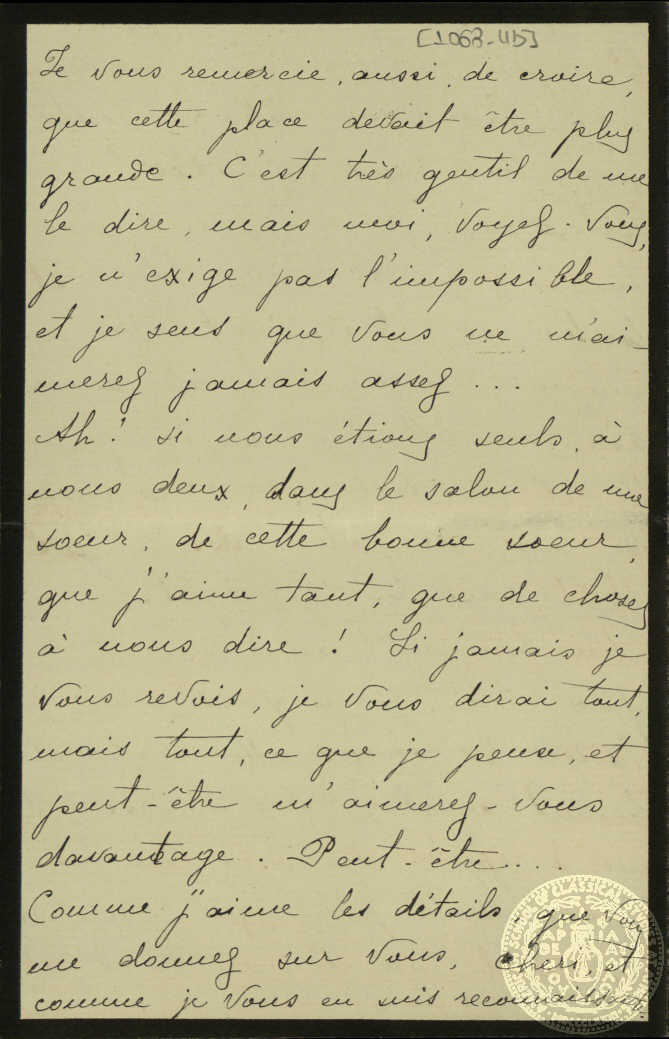 [1063-45]
Je vous remercie, aussi, de croire,
que cette place devait être plus
grande. C'est très gentil de me
le dire, mais moi, voyez-vous,
je n'exige pas l'impossible,
et je sens que vous ne m'ai-
merez jamais assez...
Ah! si nous étions seuls, à
nous deux, dans le salon de ma
soeur, de cette bonne soeur,
que j'aime tant, que de choses
à nous dire! Si jamais je
vous revois, je vous dirai tout,
mais tout, ce que je pense, et
peut-être m'aimerez-vous
davantage. Peut-être....
Comme j'aime les détails, que vous
me donnez sur vous, cheri, et
comme je vous en suis reconnaissante.